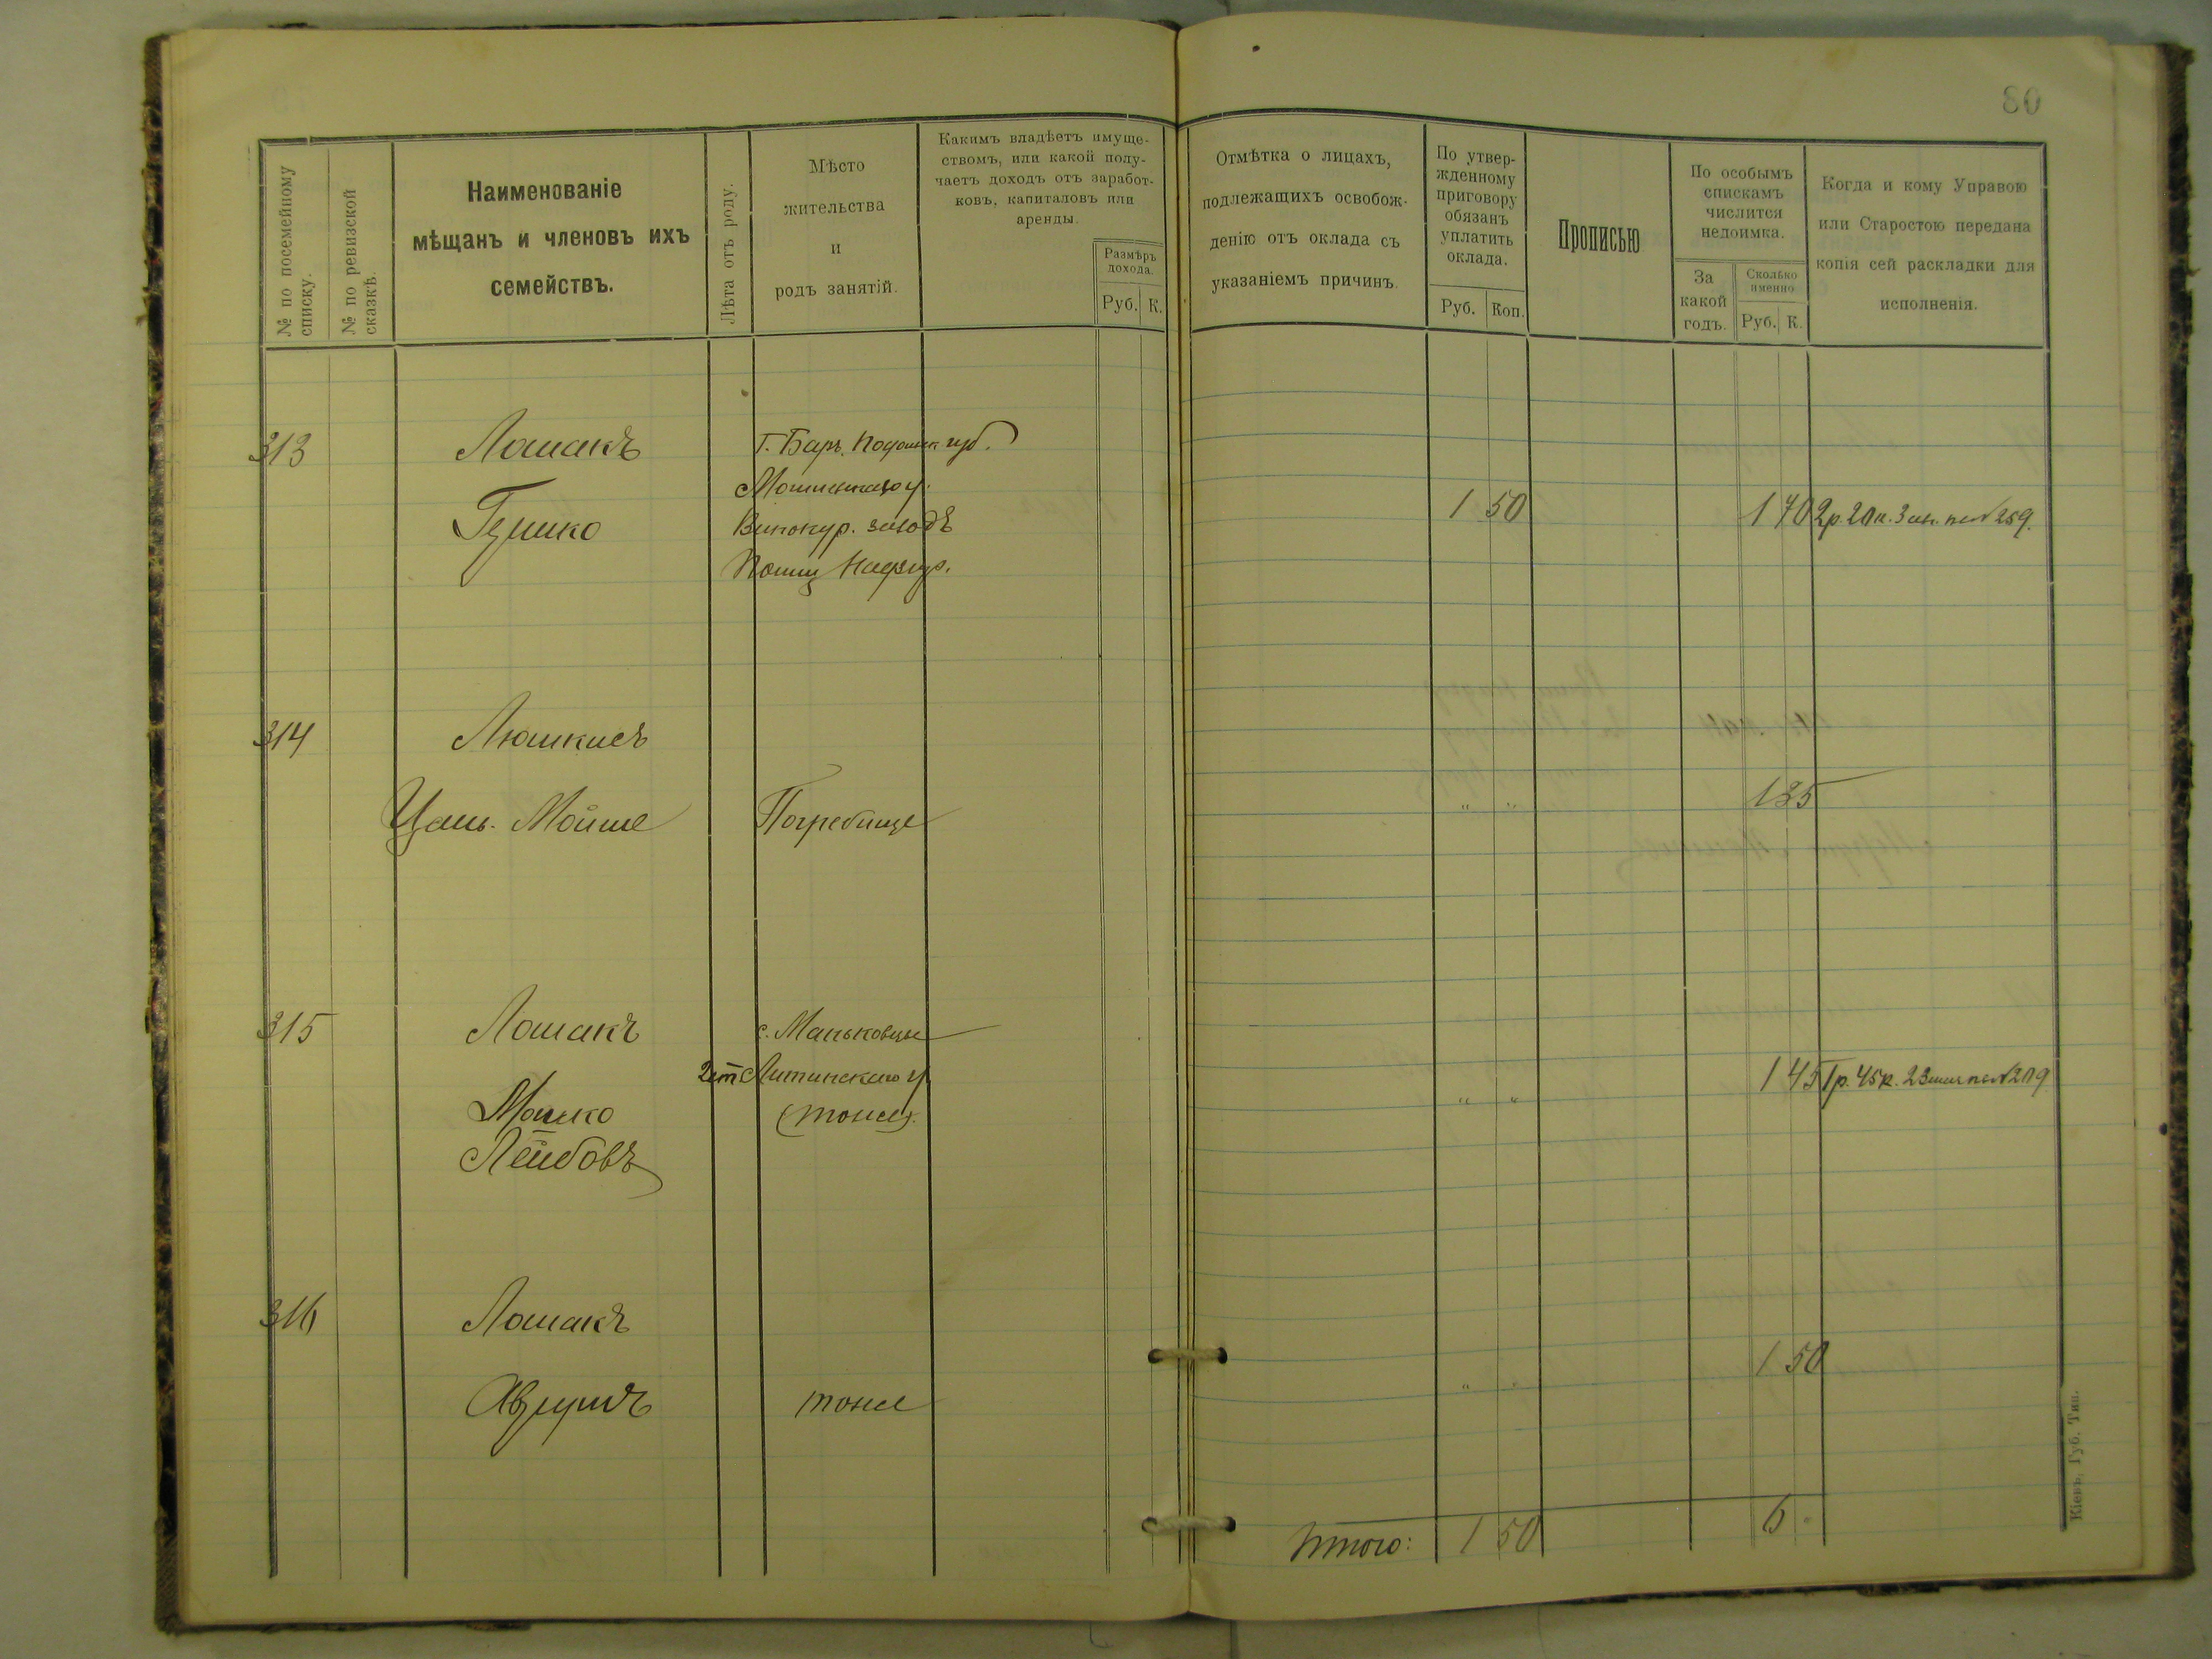 80
№ по посемейному
списку.
№ по ревизской
сказкѣ.
Наименованіе
мѣщанъ и членовъ ихъ
семействъ.
Лѣта отъ роду.
Мѣсто
жительства
и
родъ занятій.
Какимъ владѣетъ имуще-
ствомъ, или какой полу-
чаетъ доходъ отъ заработ-
ковъ, капиталовъ или
аренды.
Размѣръ
дохода.
Руб. К.
Отмѣтка о лицахъ,
подлежащихъ освобож-
денію отъ оклада съ
указаніемъ причинъ.
По утвер-
жденному
приговору
обязанъ
уплатить
оклада.
Руб. Коп.
Прописью
По особымъ
спискамъ
числится
недоимка.
За
какой
годъ.
Сколько
именно
Руб. К.
Когда и кому Управою
или Старостою передана
копія сей раскладки для
исполненія.
313 Лошакъ Г. Баръ. губ.
у.
Гершко Винокур. заводѣ 1 50 1 70 2 р. 20 к. 3 № 259.
Надзир.
314 Люшкисъ
Мойше Погребище " " 1 35
315 Лошакъ с. Маньковцы
Литинскаго у. 1 45 1 р. 45 к. 23 № 209
Мошко (тоже). " "
Лейбовъ
316 Лошакъ
1 50
тоже " "
Итого: 1 50 6 "
Кіевъ, Губ. Тип.